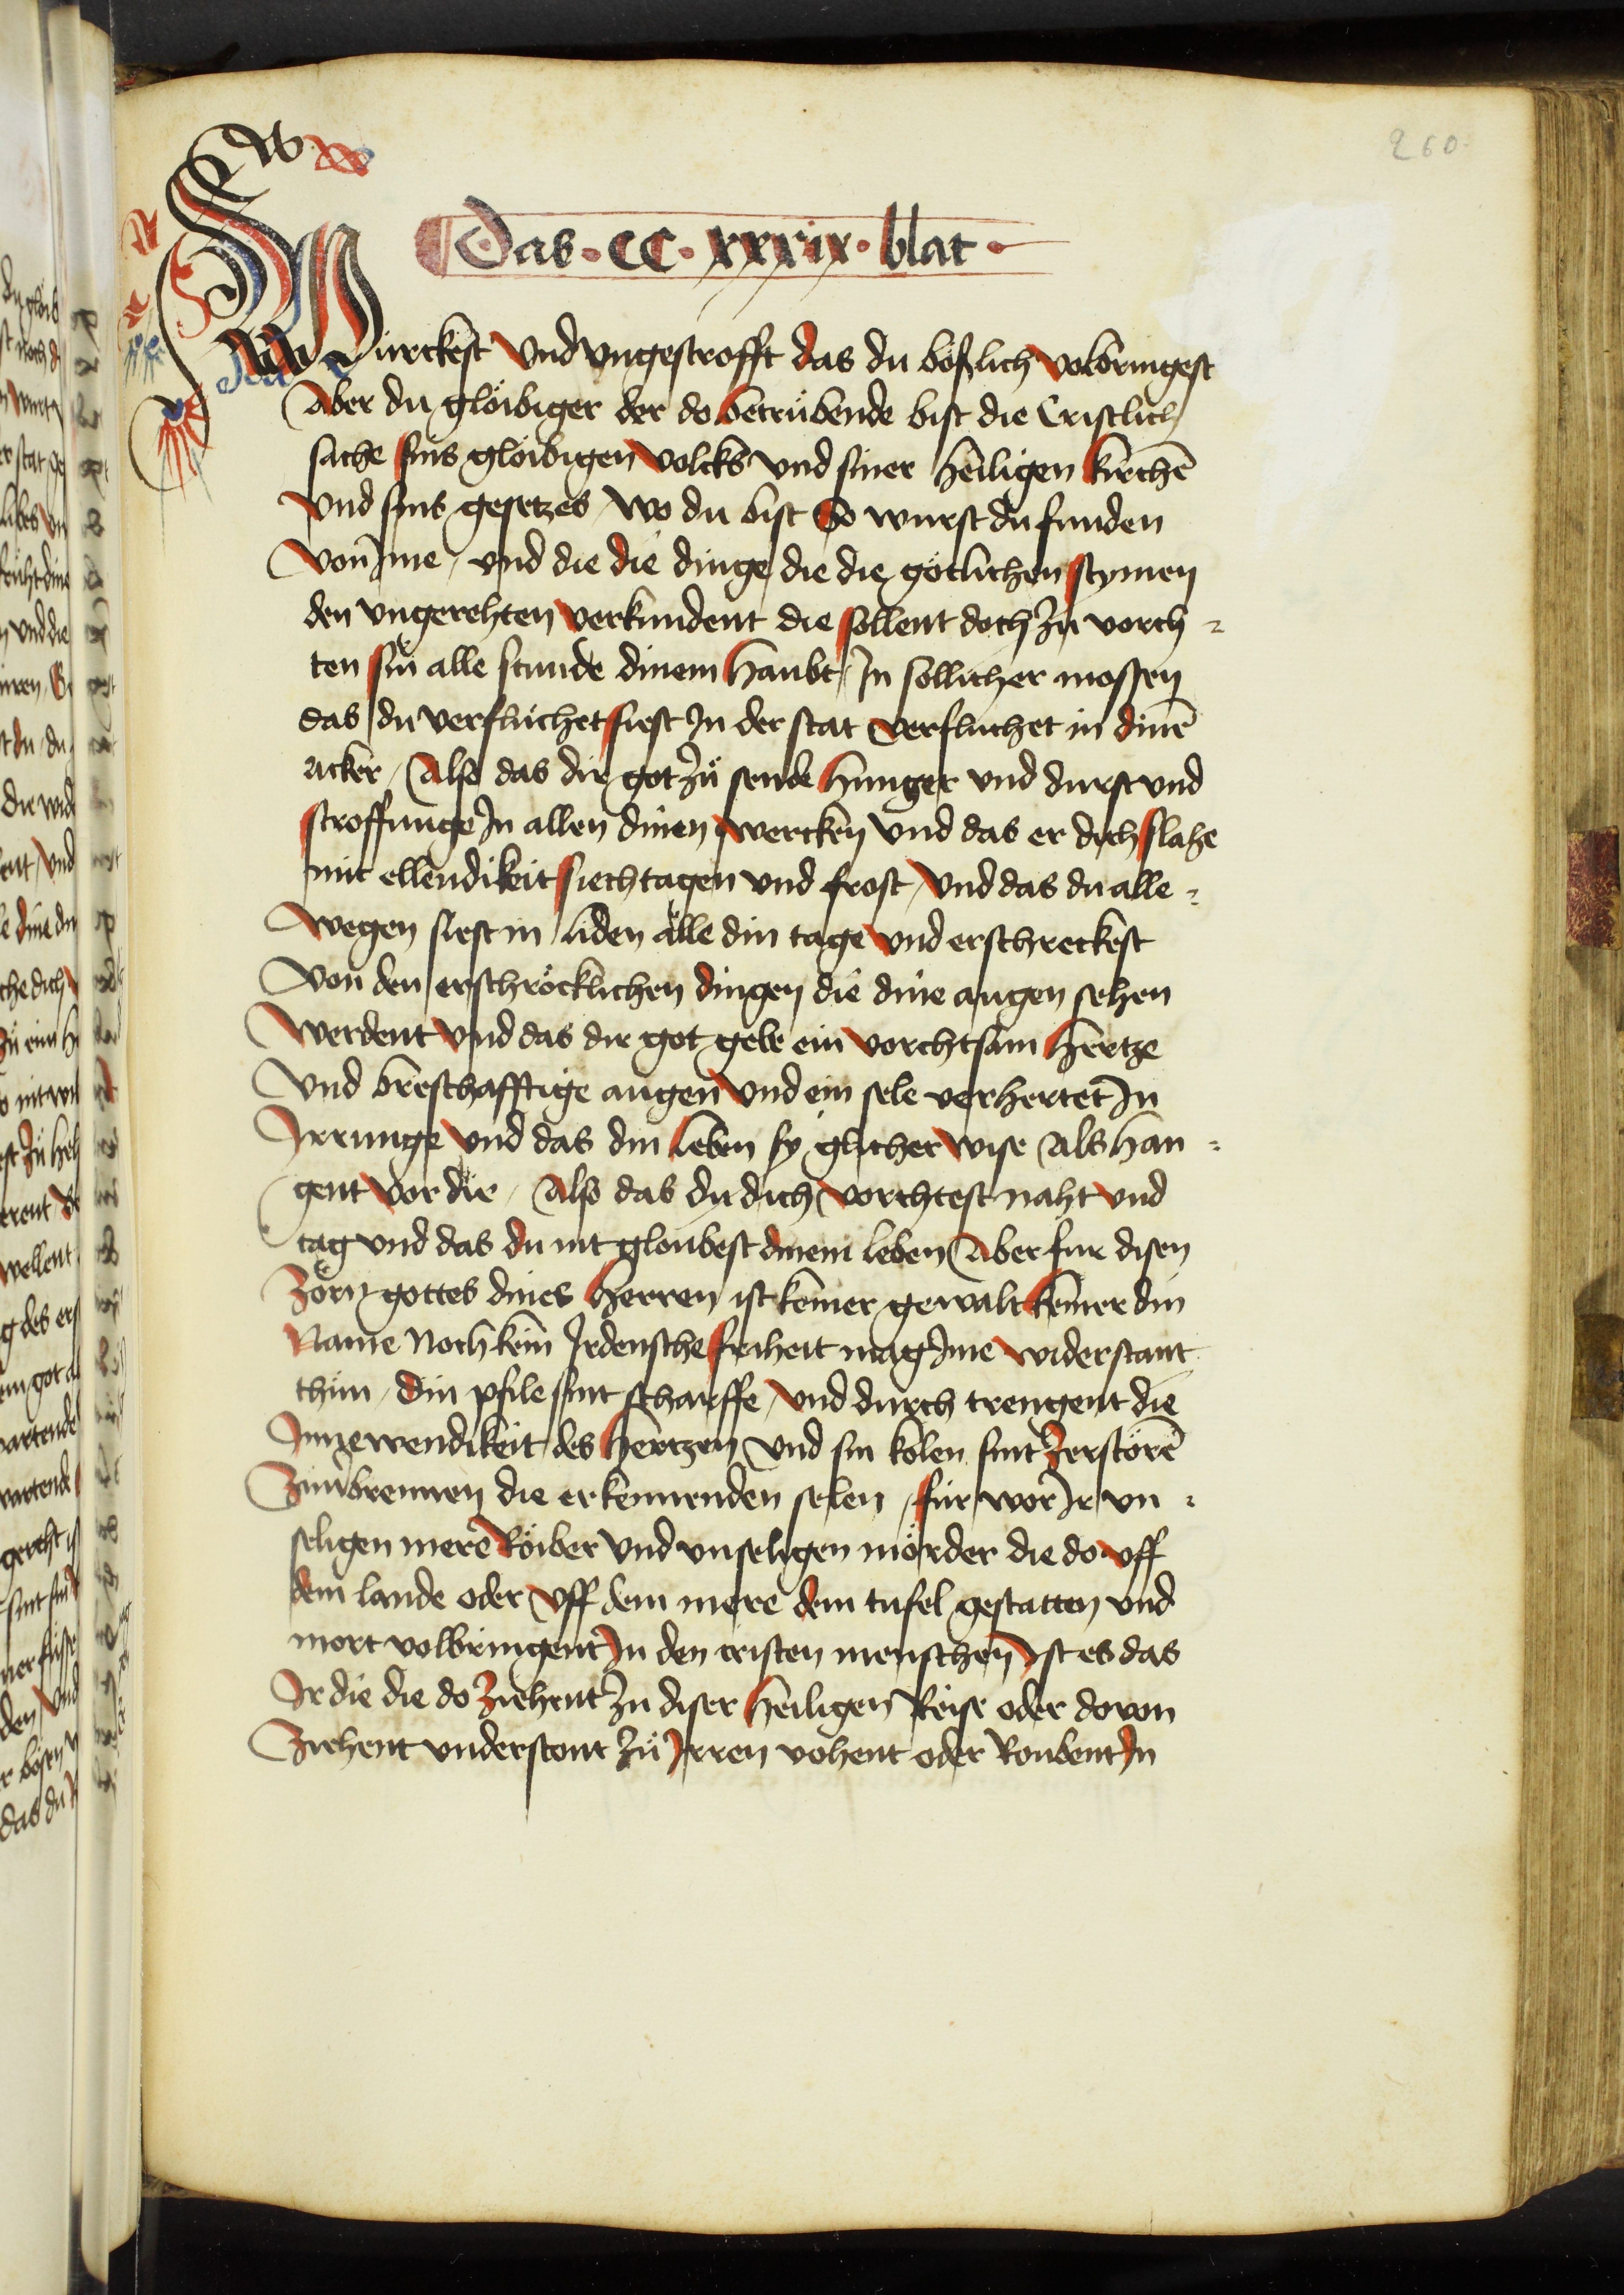 260.
Das · CC · xxxix · blat ·
Würckest vnd vngestrofft das du bößlich volbringest
Aber du glöibiger der do betrübende bist die Cristlich
sache sins glöibigen volcks vnd siner heiligen kirchē
vnd sins gesetzes wo du bist So wurst du funden
von Jme, vnd die die dinge die die götlichen stymen
den vngerehten verkundent die sollent doch zu vorch=
ten sin alle stunde dinem haubt, Jn sollicher mossen
das du verfluchet siest Jn der stat verfluchet in dinē
acker, Also das dir got zů sende hunger vnd durst vnd
stroffunge Jn allen dinen wercken vnd das er dich slahe
mit ellendikeit siechtagen vnd frost, vnd das du alle=
wegen siest in liden alle din tage vnd erschreckest
von den erschröcklichen dingen die dine augen sehen
werdent vnd das dir got gebe ein vorchtsam hertze
vnd breschafftige augen vnd ein sele verhertet Jn
Jrrunge vnd das din leben sy glicher wise als han=
gent vor dir, Also das du dich vorchtest naht vnd
tag vnd das du nit gloubest dinem leben Aber fur disen
Zorn gottes dines herren ist keiner gewalt keiner din
Name noch kein Jrdensche friheit mag Jme widerstant
thun, din pfile sint scharffe, vnd durch trengent die
Jnnewendikeit des hertzen vnd sin kolen sint zerstörē
Zuuerbrennen die erkennenden selen, für wor Jr vn=
seligen mere Röiber vnd vnseligen mörder die do vff
dem lande oder vff dem mere dem tufel gestatten vnd
mort volbringent Jn den cristen menschen Jst es das
Jr die die do ziehent zu diser heiligen Reise oder dovon
Ziehent vnderstont zů Jrren vohent oder Roubent Jn